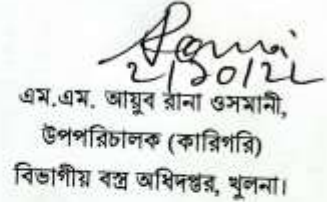 2/10/22
এম.এম. আয়ুব রানা ওসমানী,
উপপরিচালক (কারিগরি)
বিভাগীয় বস্ত্র অধিদপ্তর, খুলনা।